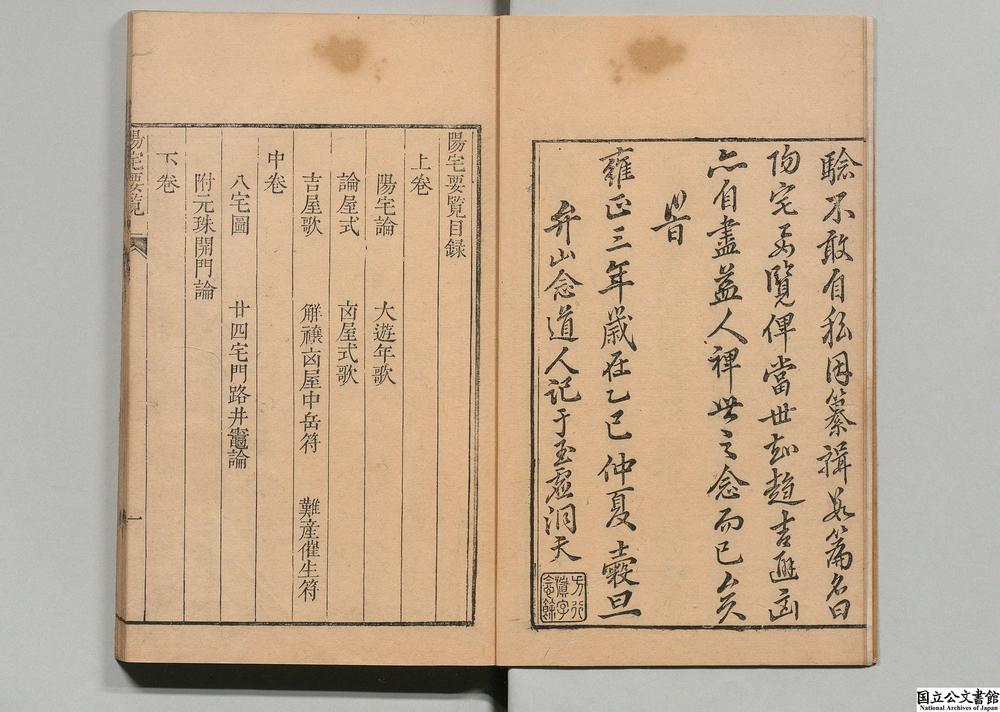 驗不敢自私因纂輯是篇名曰
陽宅要覽俾當世知趨吉避凶
亦自盡益人裨世之念而已矣
旹
雍正三年歲在乙巳仲夏穀旦
弁山念道人記于玉虛洞天
陽宅要覽目録
上卷
陽宅論 大遊年歌
論屋式 凶屋式歌
吉屋歌 解禳凶屋中岳符 難產催生符
中卷
八宅圖 廿四宅門路井竈論
附元珠開門論
下卷
陽宅要覽
一
国立公文書館
National Archives of Japan